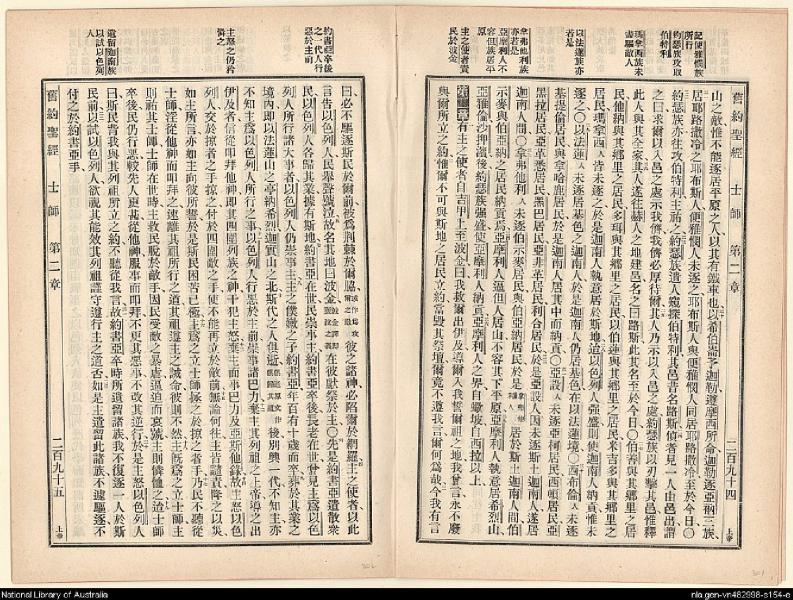 記便雅憫族所行
約瑟族攻取伯特利
瑪拿西族未盡驅敵人
以法蓮族亦若是
拿弗他利族亦若是
亞摩利人不容但族居平原
主之使者責民於波金
舊約聖經 士師 第二章 二百九十四 上帝
山之敵惟不能逐居平原之人以其有鐵車也以希伯崙予迦勒遵摩西所命迦勒逐亞衲三族
居耶路撒冷之耶布斯人便雅憫人未逐之耶布斯人與便雅憫人同居耶路撒冷至於今日〇
約瑟族亦往攻伯特利主祐之約瑟族遣人窺探伯特利其邑昔名路斯偵者見一人由邑出謂
之曰求爾以入邑之處示我儕我儕必厚待爾其人乃示以入邑之處約瑟族以刃擊其邑惟釋
此人與其全家其人遂往赫人之地建邑名之曰路斯此其名至於今日〇伯善與其鄉里之居
民他納與其鄉里之居民多珥與其鄉里之居民以伯蓮與其鄉里之居民米吉多與其鄉里之
居民瑪拿西人皆未逐之於是迦南人執意居於斯地迨以色列人強盛則使迦南人納貢惟未
逐之〇以法蓮人未逐居基色之迦南人於是迦南人仍居基色在以法蓮境〇西布倫人未逐
基提倫居民與拿哈鹿居民於是迦南人居其中而納貢〇亞設人未逐亞柯居民西頓居民亞
黑拉居民亞革悉居民黑巴居民亞非革居民利合居民於是亞設人因未逐斯土迦南人遂居
迦南人間〇拿弗他利人未逐伯示麥居民與伯亞納居民於是居於斯土迦南人間伯
示麥與伯亞納之居民納貢焉亞摩利人逼但人居山不容其下平原亞摩利人執意居希烈山
亞雅倫沙押瀕後約瑟族強盛使亞摩利人納貢亞摩利人之界自蠍坡自西拉以上
第二章 有主之使者自吉甲上至波金曰我救爾出伊及導爾入我誓爾祖之地我曾言永不廢
與爾所立之約惟爾不可與斯地之居民立約當毀其祭壇爾竟不遵我言爾何為哉今我有言
約書亞卒後之一代人行惡於主前
主怒之仍矜憐之
遺留迦南族以試以色列人
曰必不驅逐斯民於爾前彼為荊棘於爾脇彼之諸神必陷爾於網羅主之使者以此
言告以色列人民舉聲號泣故名其地曰波金在彼獻祭於主〇先是約書亞遣散衆
民以色列人各歸其業據有斯地約書亞在世民崇事主約書亞卒後長老在世曾見主為以色
列人所行諸大事者以色列人仍崇事主主之僕嫩之子約書亞年百有十歲而卒葬於其業之
境內即以法蓮山之亭納希烈迦實山之北斯代之人俱逝後別興一代不知主亦
不知主為以色列人所行之事以色列人行惡於主前崇事諸巴力棄主其列祖之上帝導之出
伊及者信從叩拜他神即其四圍列族之神干犯主怒棄主而事巴力及亞斯他錄故主怒以色
列人交於掠者之手掠之付於四圍敵之手使不能再立於敵前無論何往主皆譴責降之以災
如主所言亦如主向彼所誓於是斯民困苦已極主為之立士師拯之於掠之者手乃民不聽從
士師淫從他神而叩拜之速離其祖所行之道其祖遵主之誡命彼則不然主既為之立士師主
則祐其士師士師在世時主救民脫於敵手因民受敵之暴虐逼迫而哀號主則憐恤之迨士師
卒後民仍行惡較先人更甚從他神服事而叩拜不更其惡事不改其逆行於是主怒以色列人
曰斯民背我與其列祖所立之約不聽從我言故約書亞卒時所遺留諸族我不復逐一人於斯
民前以試以色列人欲視其能效其列祖謹守遵行主之道否如是主遺留此諸族不遽驅逐不
付之於約書亞手
舊約聖經 士師 第二章 二百九十五 上帝
National Library of Australia
nla.gen-vn482998-s154-e